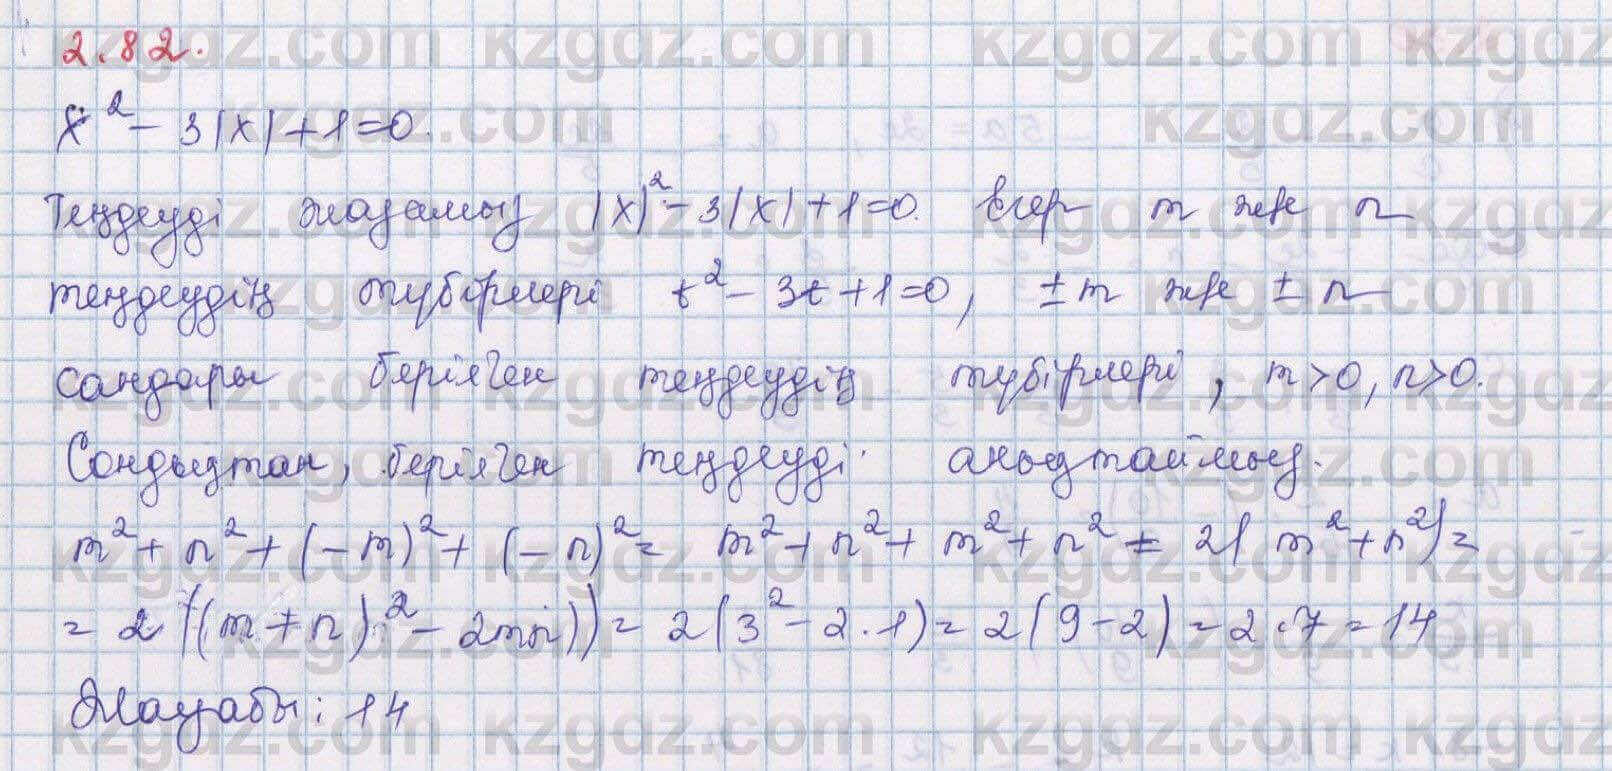 2.82.
x² - 3|x| + 1 = 0.
Теңдеуді жазамыз |x|² - 3|x| + 1 = 0. Егер m және n
теңдеудің түбірлері t² - 3t + 1 = 0, ±m және ±n
сандары берілген теңдеудің түбірлері, m > 0, n > 0.
Сондықтан, берілген теңдеуді анықтаймыз.
m² + n² + (-m)² + (-n)² = m² + n² + m² + n² = 2(m² + n²) =
= 2((m + n)² - 2mn)) = 2(3² - 2·1) = 2(9 - 2) = 2·7 = 14
Жауабы: 14
kzgdz.com